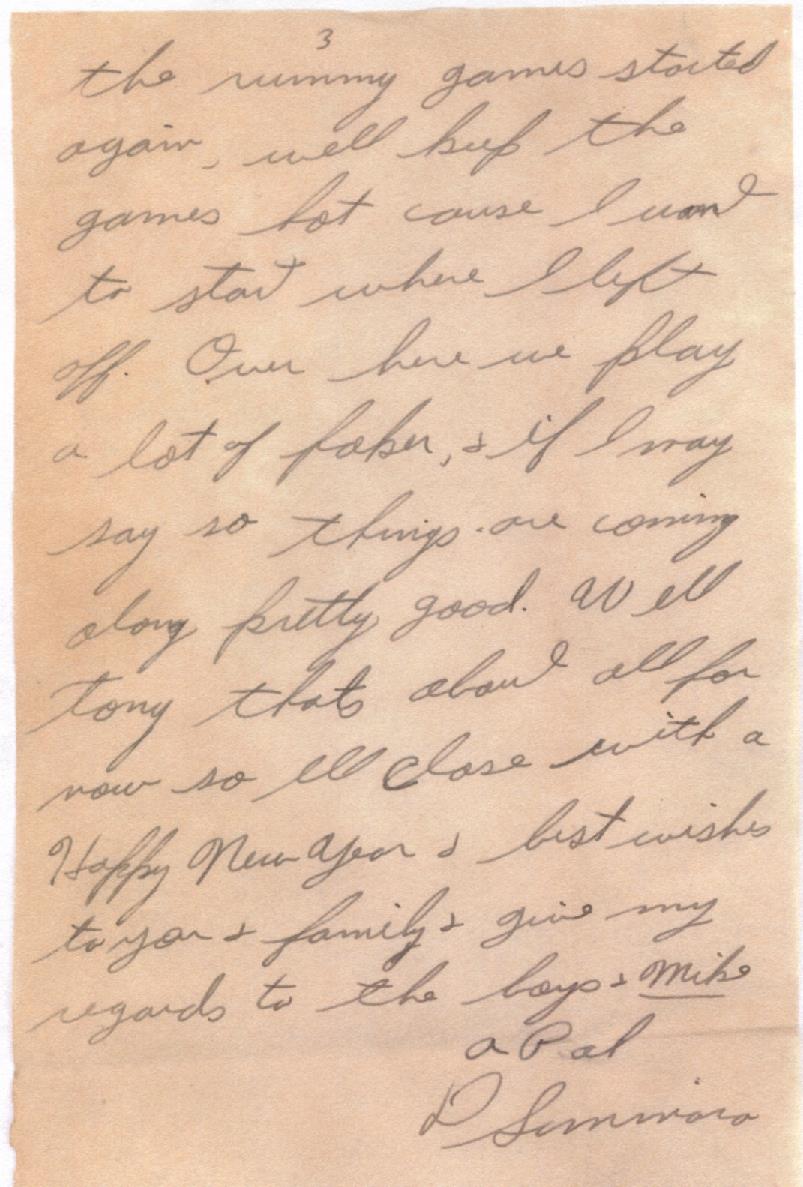 3
the rummy games started
again, well keep the
games hot cause I want
to start where I left
off. Over here we play
a lot of poker, & if I may
say so things are coming
along pretty good. Well
Tony thats about all for
now so Ill close with a
Happy New Year & best wishes
to you & family & give my
regards to the boys & Mike
a Pal
D